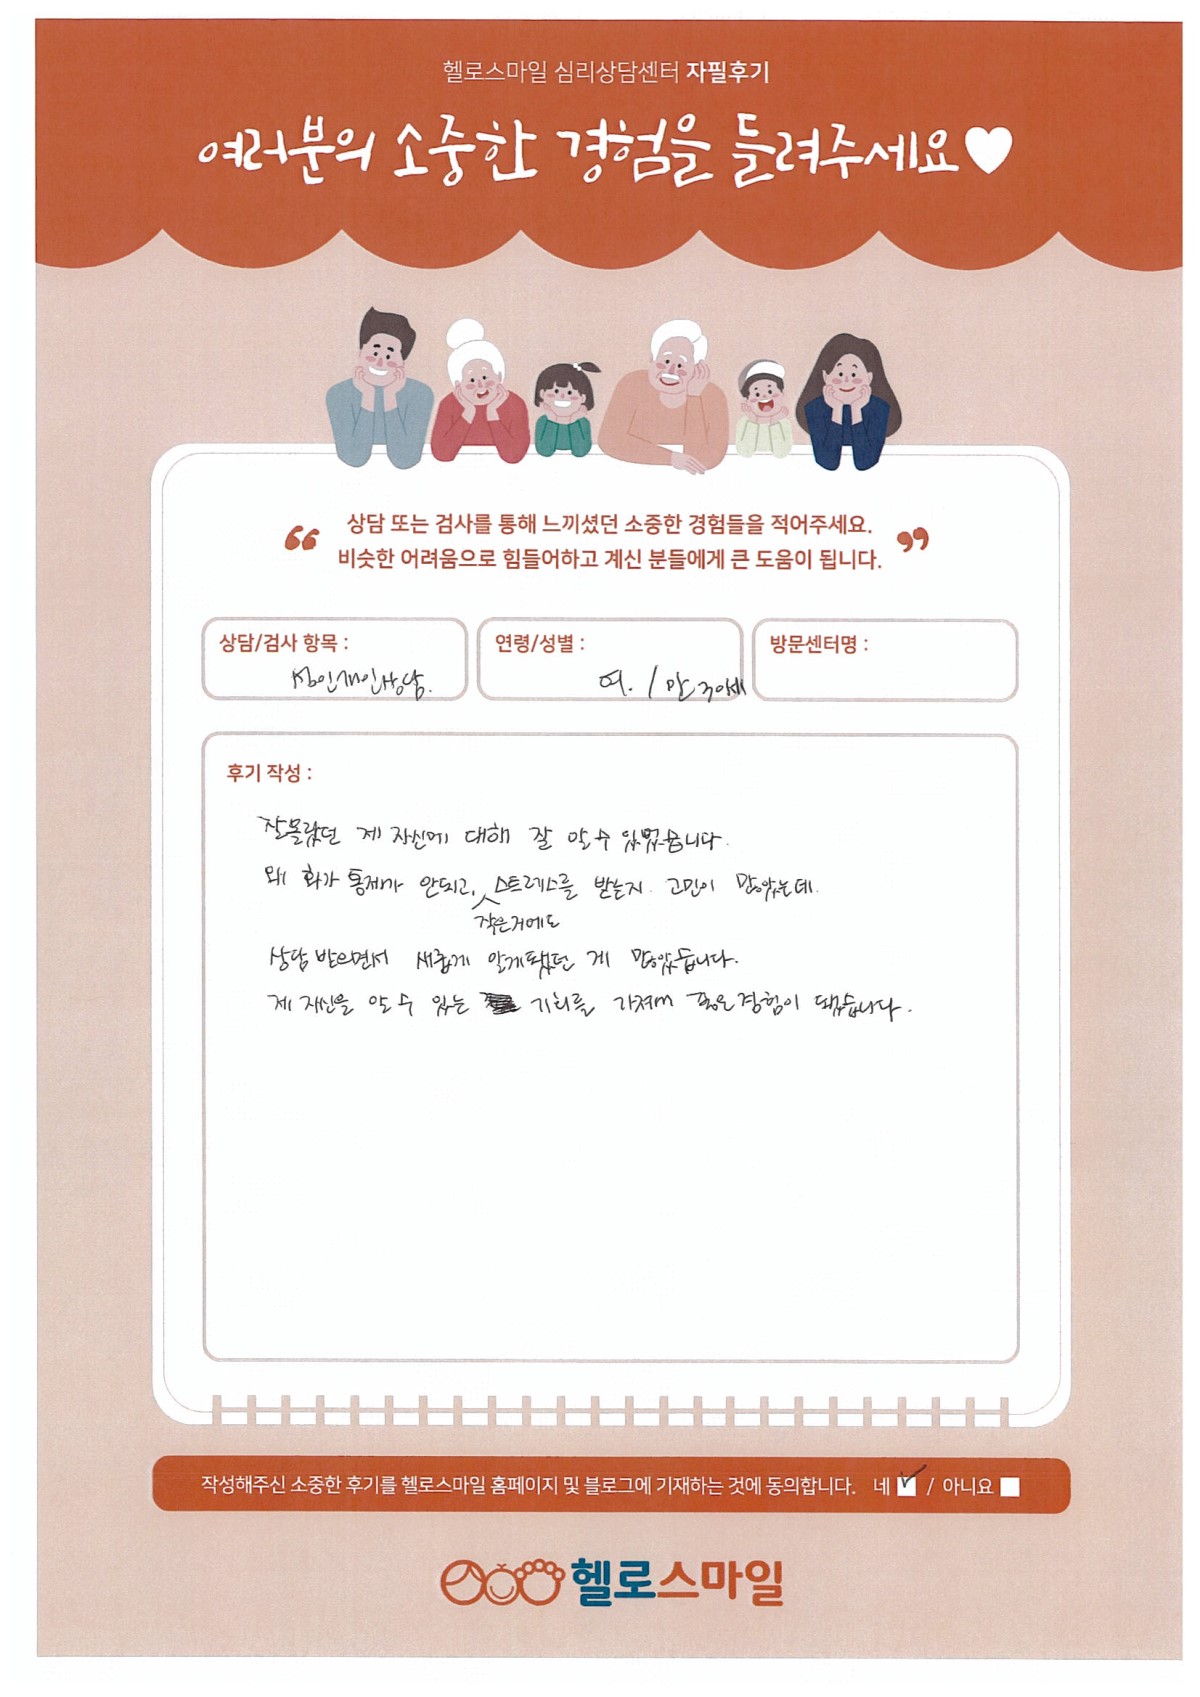 헬로스마일 심리상담센터 자필후기
여러분의 소중한 경험을 들려주세요♥
“ 상담 또는 검사를 통해 느끼셨던 소중한 경험들을 적어주세요. ”
비슷한 어려움으로 힘들어하고 계신 분들에게 큰 도움이 됩니다.
상담/검사 항목 : 성인개인상담.
연령/성별 : 여. / 만 30세
방문센터명 :
후기 작성 :
잘몰랐던 제 자신에 대해 잘 알 수 있었습니다.
왜 화가 통제가 안되고, 작은거에도 스트레스를 받는지 고민이 많았는데.
상담 받으면서 새롭게 알게됐던 게 많았습니다.
제 자신을 알 수 있는 기회를 가져서 좋은경험이 됐습니다.
작성해주신 소중한 후기를 헬로스마일 홈페이지 및 블로그에 기재하는 것에 동의합니다. 네 ☑ / 아니요 ☐
헬로스마일